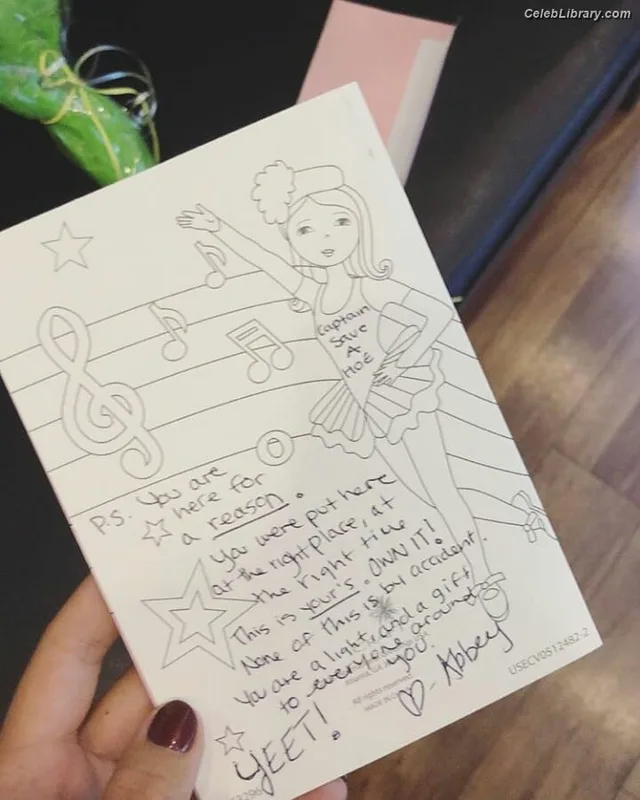 CelebLibrary.com
Captain
Save
A
HOE
P.S. You are
here for
a reason.
You were put here
at the right place, at
the right time
This is your's. OWN IT!
None of this is by accident.
You are a light, and a gift
to everyone around
you.
♡ - Abbey
YEET!
All rights reserved
MADE IN
USECV0512482-2
3296